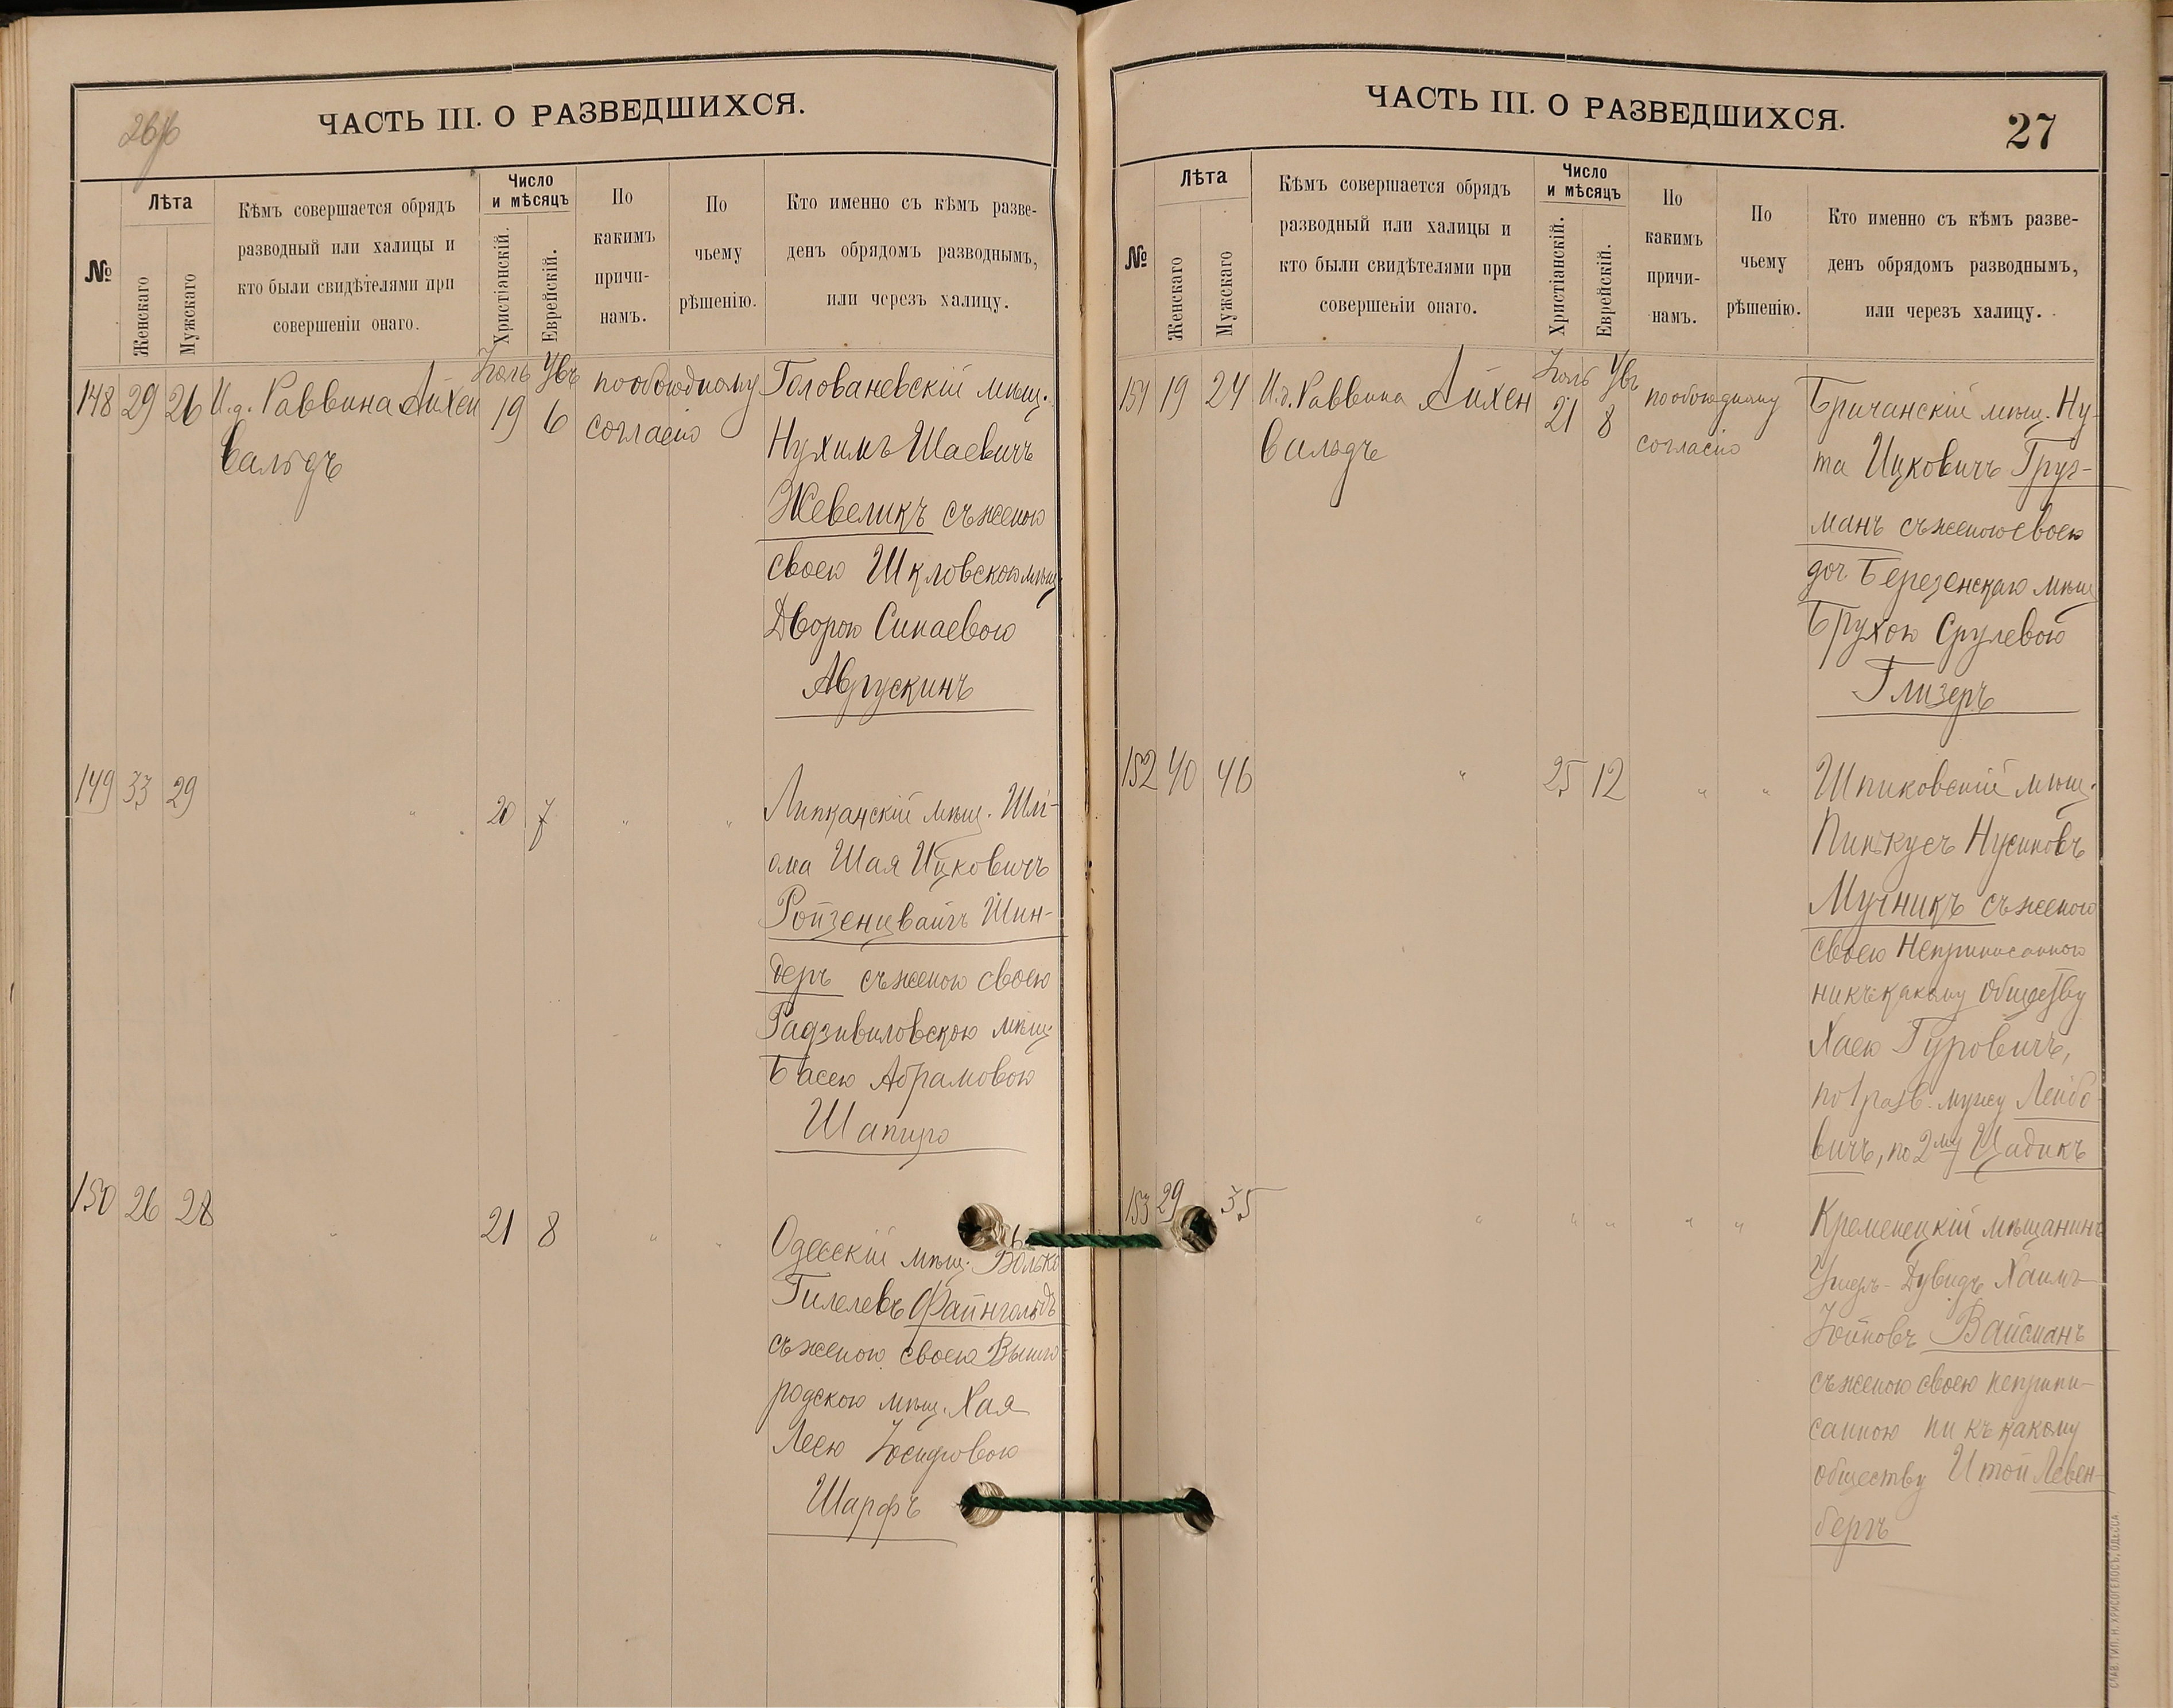 26/б
ЧАСТЬ III. О РАЗВЕДШИХСЯ.
№
Лѣта
Женскаго
Мужскаго
Кѣмъ совершается обрядъ
разводный или халицы и
кто были свидѣтелями при
совершеніи онаго.
Число
и мѣсяцъ
Христіанскій.
Еврейскій.
По
какимъ
причи-
намъ.
По
чьему
рѣшенію.
Кто именно съ кѣмъ разве-
денъ обрядомъ разводнымъ,
или черезъ халицу.
148 29 26 И.д. Раввина Айхен
вальдъ
19 6
пообоюдному
согласію
Голованевскій мѣщ.
Нухимъ Шаевичъ
Жевеликъ съ женою
своею Шкловскою мѣщ
Дворою Синаевою
Аврускинъ
149 33 29 " 20 7 " "
Липканскій мѣщ. Шлі-
ома Шая Ицковичъ
Ройзенцвайгъ Шин-
деръ съ женою своею
Радзивиловскою мѣщ
Басею Абрамовою
Шапиро
150 26 28 " 21 8 " "
Одесскій мѣщ. Волько
Гилелевъ Файнгольдъ
съ женою своею Вышго-
родскою мѣщ. Хая
Леею Іосифовою
Шарфъ
ЧАСТЬ III. О РАЗВЕДШИХСЯ.
27
№
Лѣта
Женскаго
Мужскаго
Кѣмъ совершается обрядъ
разводный или халицы и
кто были свидѣтелями при
совершеніи онаго.
Число
и мѣсяцъ
Христіанскій.
Еврейскій.
По
какимъ
причи-
намъ.
По
чьему
рѣшенію.
Кто именно съ кѣмъ разве-
денъ обрядомъ разводнымъ,
или черезъ халицу.
151 19 24 И.д. Раввина Айхен
вальдъ
21 8
пообоюдному
согласію
Бричанскій мѣщ. Ну-
та Ицковичъ Груз-
манъ съ женою своею
доч Березенскаго мѣщ
Брухою Срулевою
Глизеръ
152 40 46 " 25 12 " "
Шпиковскій мѣщ.
Пинкусъ Нусиновъ
Мучникъ съ женою
своею Неприписанною
никъ какому обществу
Хаею Гуровичъ,
по 1 разв. мужу Лейбо-
вичъ, по 2му Цадикъ
153 29 35 " " " " "
Кременецкій мѣщанинъ
Ушеръ-Дувидъ Хаимъ
Іойновъ Вайсманъ
съ женою своею неприпи-
санною ни къ какому
обществу Итой Левен-
бергъ
СЛАВ. ТИП. Н. ХРИСОГЕЛОСЪ, ОДЕССА